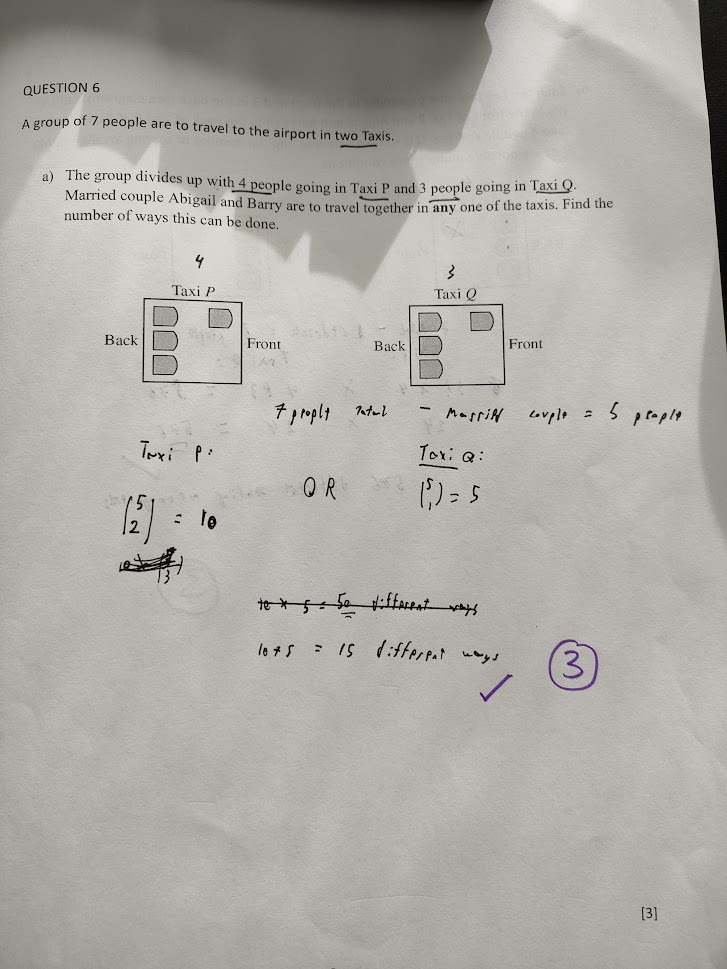 QUESTION 6
A group of 7 people are to travel to the airport in two Taxis.
a) The group divides up with 4 people going in Taxi P and 3 people going in Taxi Q.
Married couple Abigail and Barry are to travel together in any one of the taxis. Find the
number of ways this can be done.
4 3
Taxi P Taxi Q
Back Front Back Front
7 people Total - Married couple = 5 people
Taxi P: Taxi Q:
OR
(5 2) = 10 (5 1) = 5
10 × 5 = 50 different ways
10 + 5 = 15 different ways ✓ 3
[3]